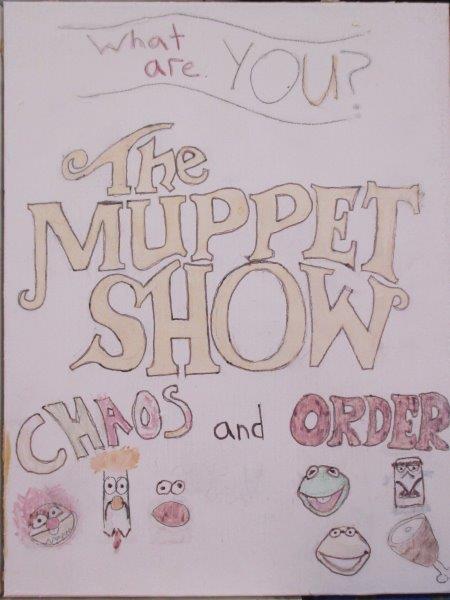 What
are. YOU?
The
MUPPET
SHOW
CHAOS and ORDER